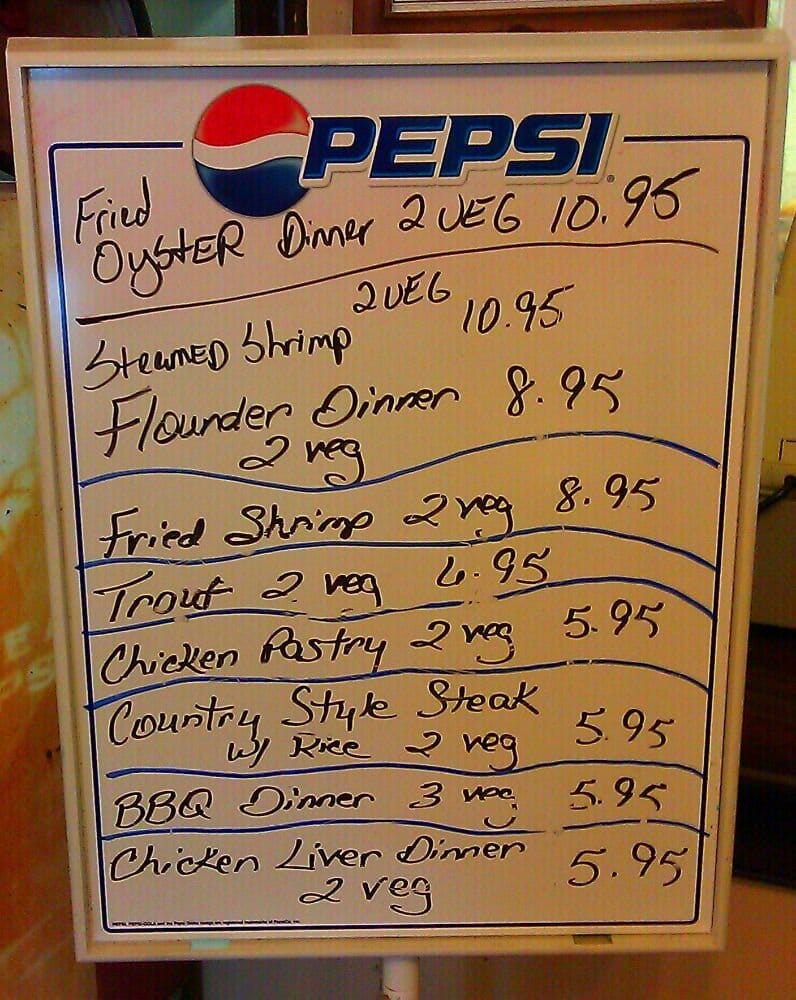 PEPSI
Fried
OYSTER Dinner 2 VEG 10.95
2 VEG
Steamed Shrimp 10.95
Flounder Dinner 8.95
2 veg
Fried Shrimp 2 veg 8.95
Trout 2 veg 6.95
Chicken Pastry 2 veg 5.95
Country Style Steak
w/ Rice 2 veg 5.95
BBQ Dinner 3 veg 5.95
Chicken Liver Dinner 5.95
2 veg